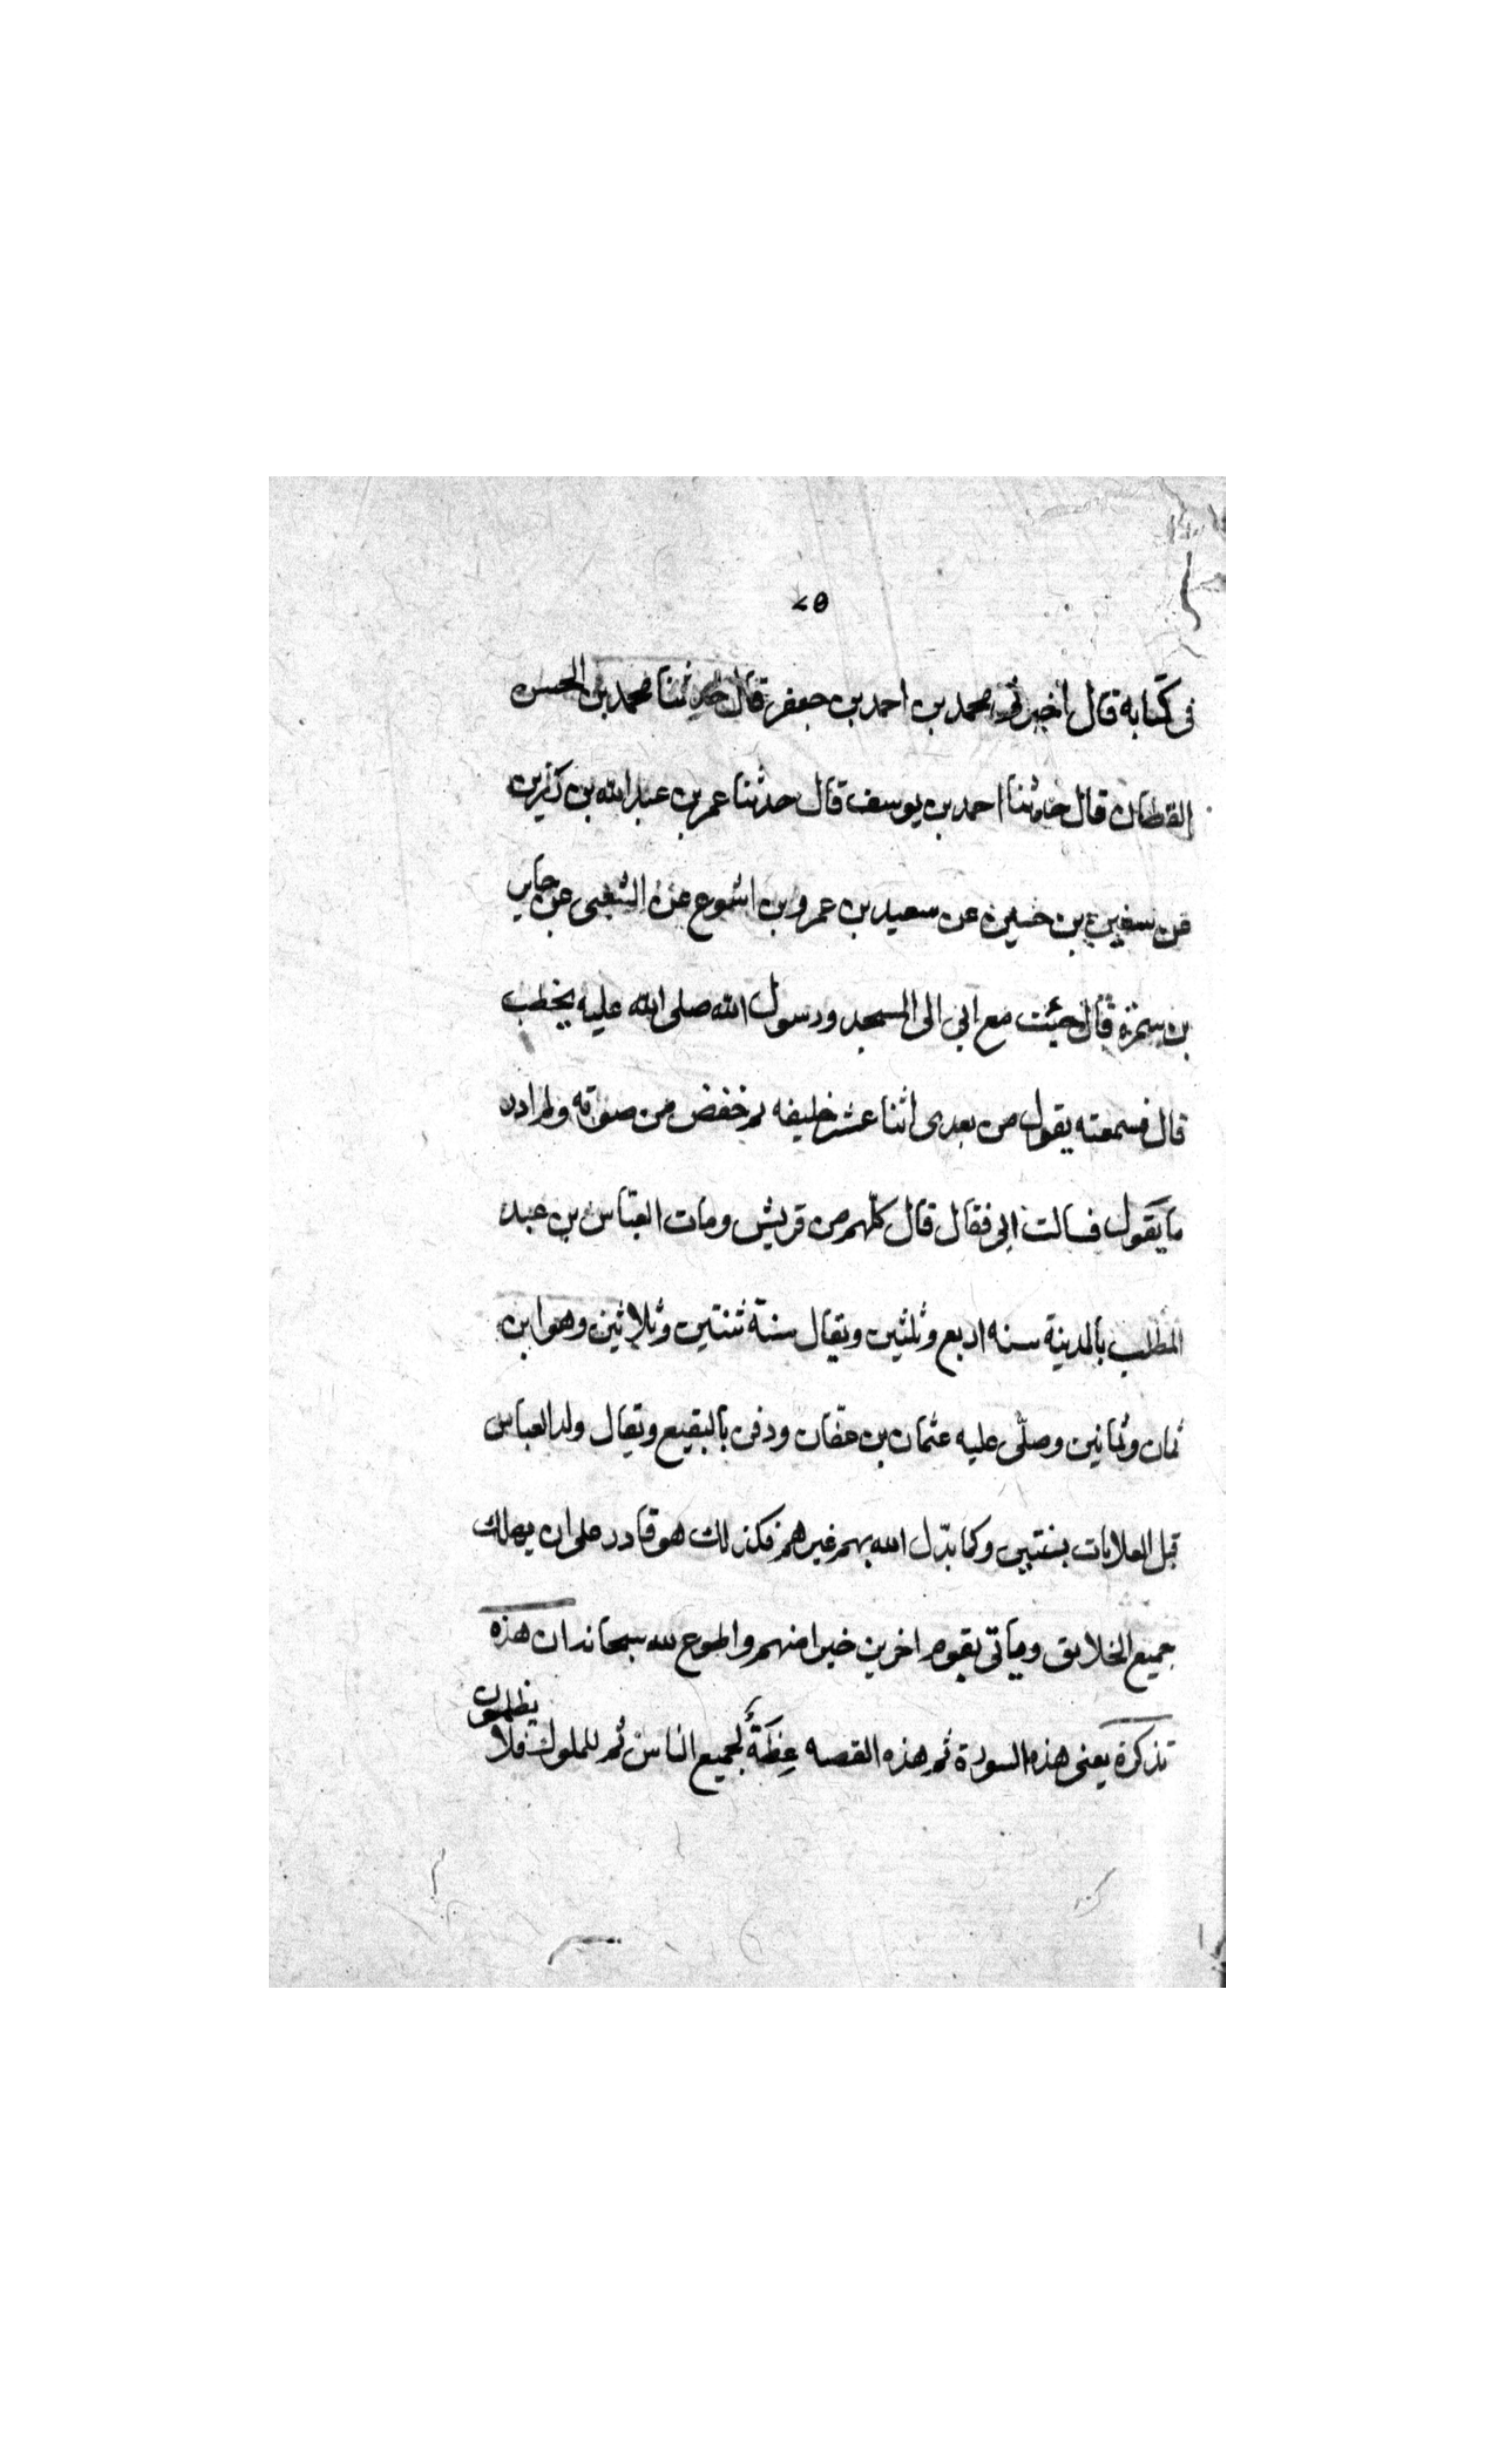 ٧٥
في كتابه قال أخبرني محمد بن احمد بن جعفر قال حدثنا محمد بن الحسن
القطان قال حدثنا احمد بن يوسف قال حدثنا عمر بن عبد الله بن رزين
عن سفين بن حسين عن سعيد بن عمرو بن اشوع عن الشعبى عن جابر
بن سمرة قال جئت مع ابي الى المسجد ورسول الله صلى الله عليه يخطب
قال فسمعته يقول من بعدى اثنا عشر خليفه ثم خفض من صوته ولم ادر
ما يقول فسالت ابي فقال قال كلهم من قريش ومات العبّاس بن عبد
المطلب بالمدينة سنه اربع وثلثين ويقال سنة ثنتين وثلاثين وهو ابن
ثمان وثمانين وصلّى عليه عثمان بن عفان ودفن بالبقيع ويقال ولد العباس
قبل بسنتين وكما بدّل الله بهم غيرهم فكذلك هو قادر على ان يهلك
جميع الخلايق وياتى بقوم اخرين خيرا منهم واطوع لله سبحانه ان هذه
تذكرة يعنى هذه السورة ثم هذه القصه عِظَةٌ لجميع الناس ثم للملوك فلا
يظلمون